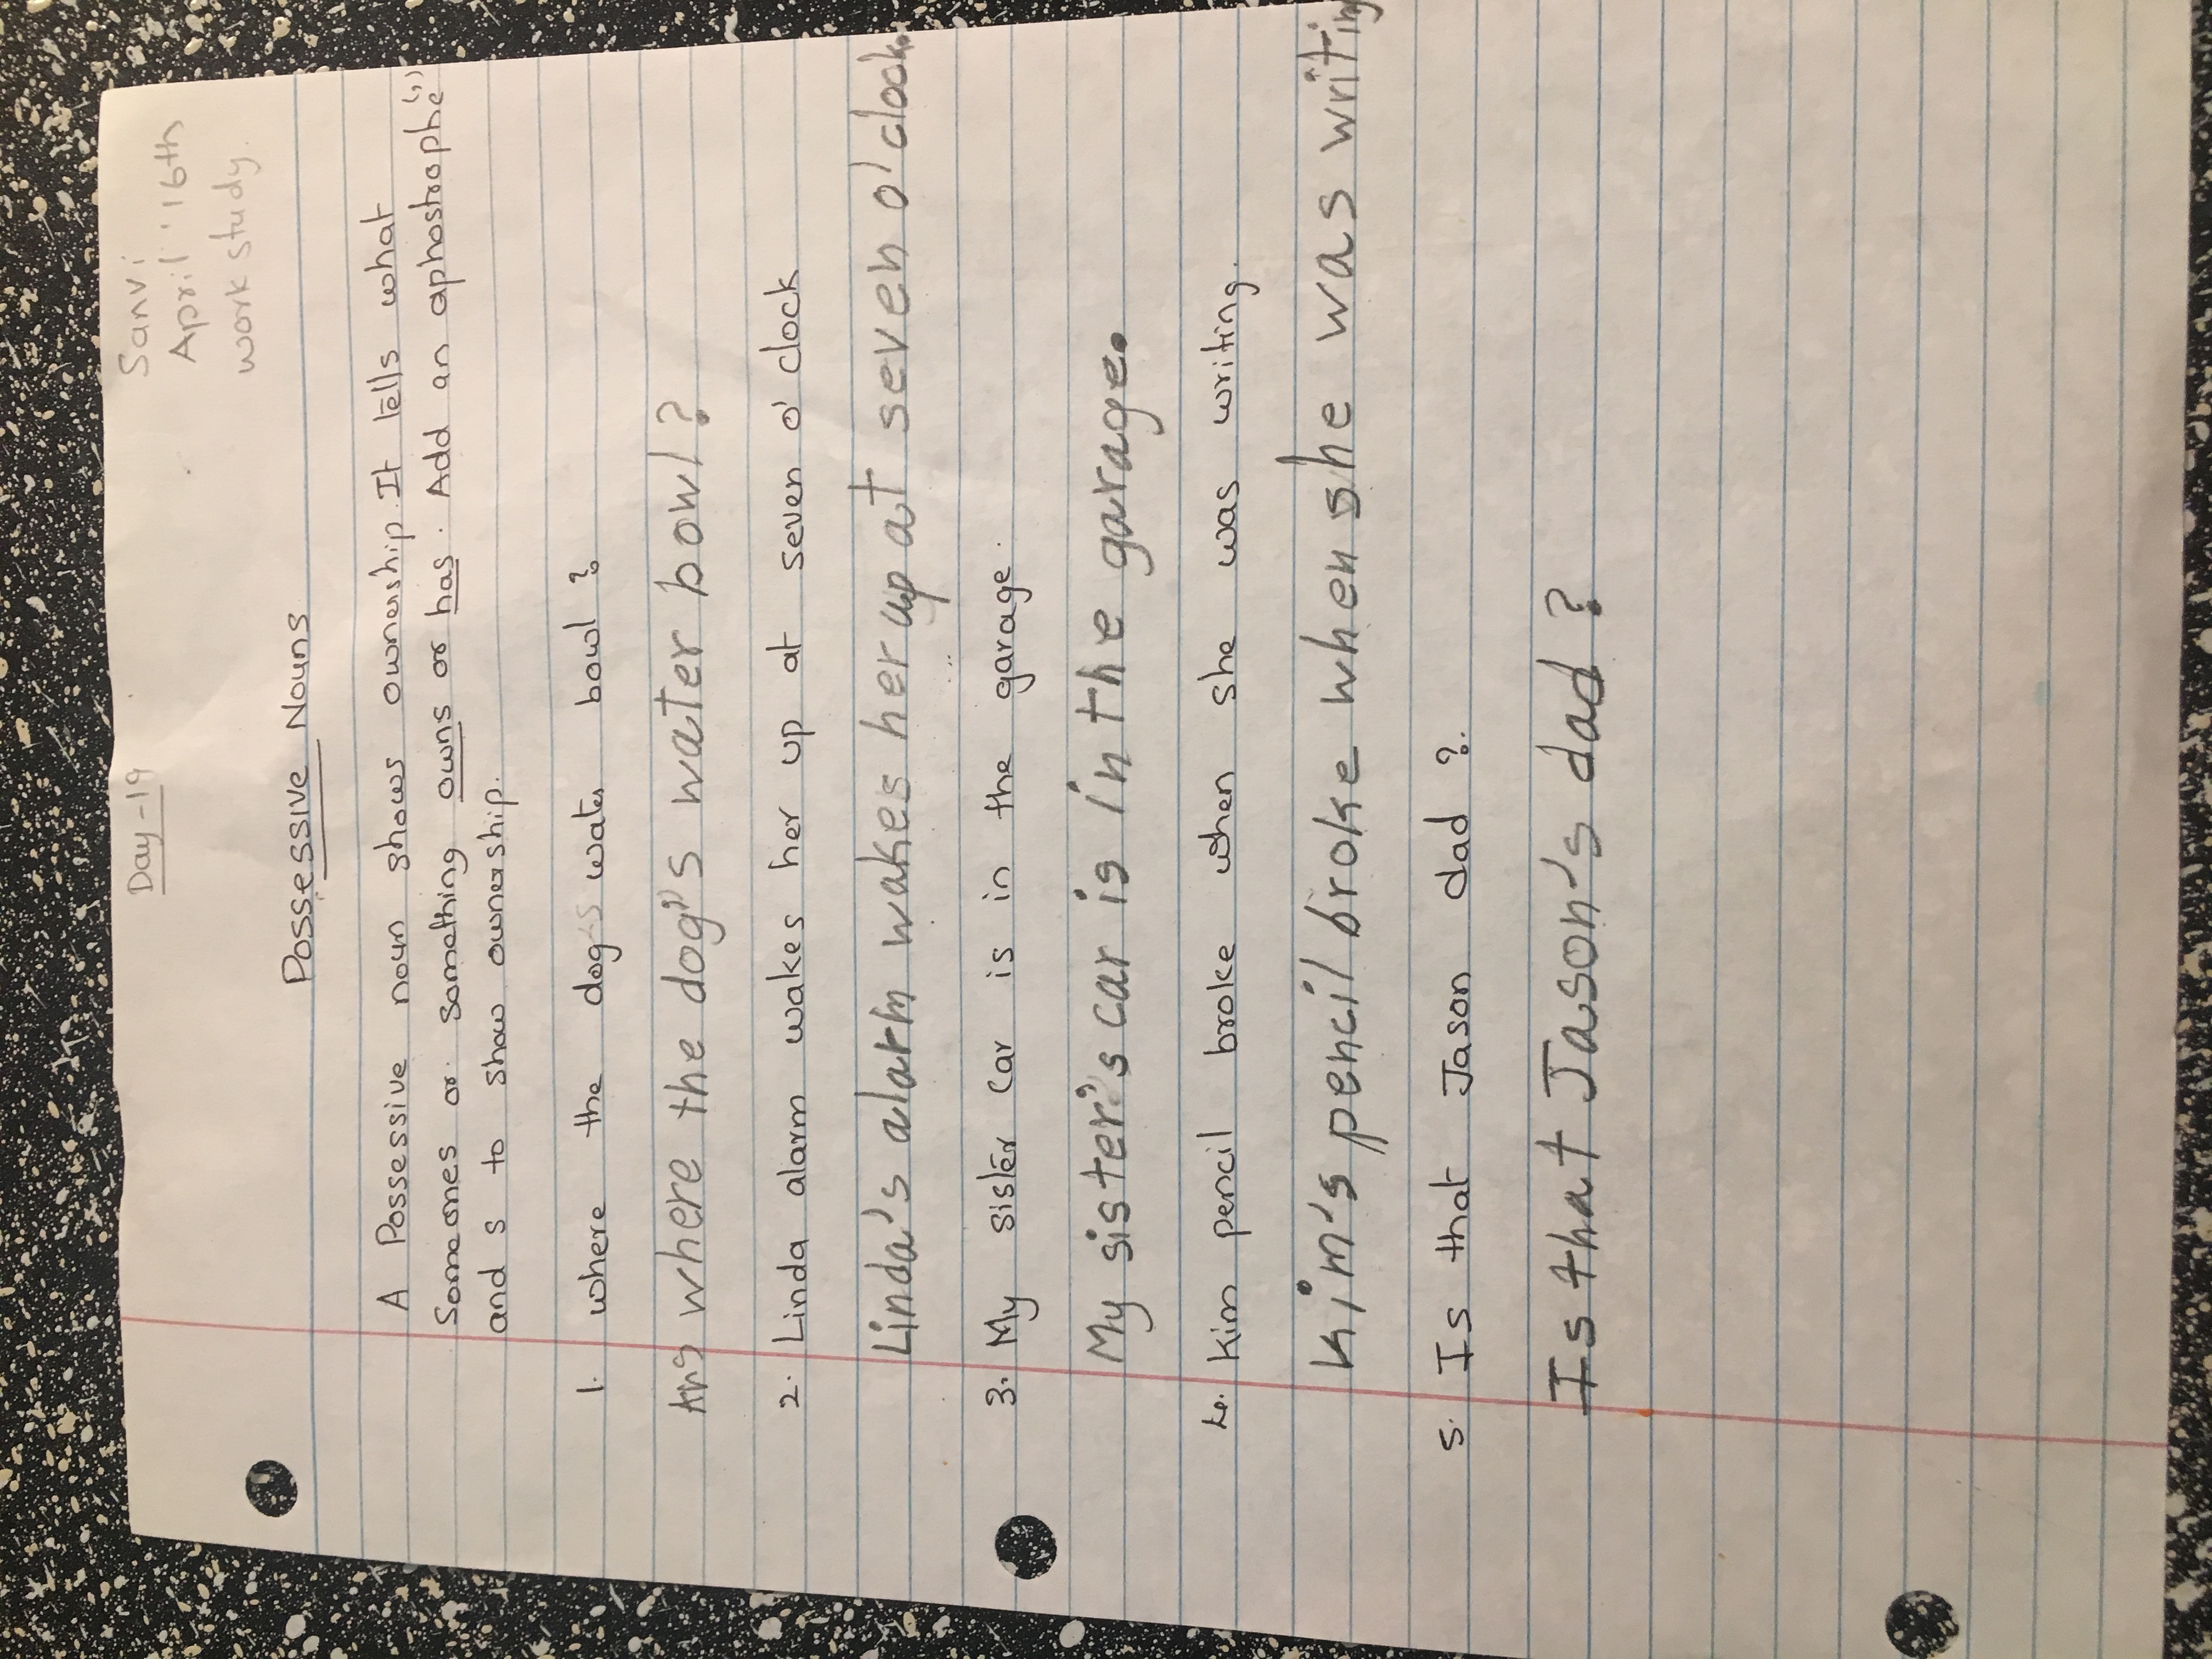 Day-19
Sanvi
April '16th
work study.
Possessive Nouns
A Possessive noun shows ownership. It tells what
Someones or something owns or has. Add an aphostrophe (')
and s to show ownership.
1. where the dog's water bowl?
Ans where the dog's water bowl?
2. Linda alarm wakes her up at seven o'clock
Linda's alarm wakes her up at seven o'clock.
3. My sister car is in the garage.
My sister's car is in the garage.
4. Kim pencil broke when she was writing.
Kim's pencil broke when she was writing
5. Is that Jason dad?.
Is that Jason's dad?